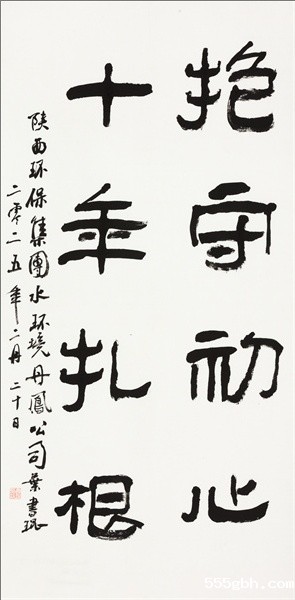 抱守初心
十年扎根
陕西环保集團水环境丹鳳公司 葉書琨
二零二五年二月二十日
555gbh.com